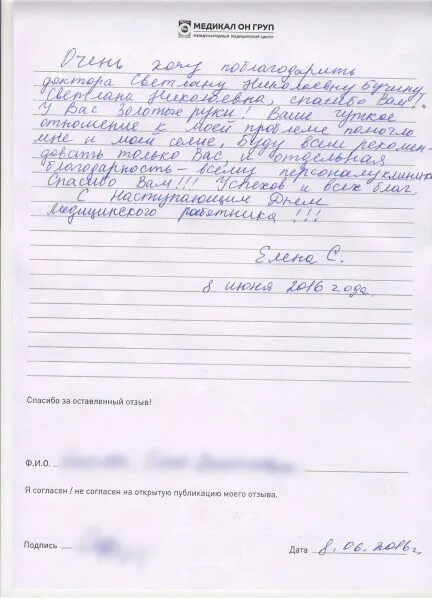 МЕДИКАЛ ОН ГРУП
МЕЖДУНАРОДНЫЙ МЕДИЦИНСКИЙ ЦЕНТР
Очень хочу поблагодарить
доктора Светлану Николаевну Бучину,
Светлана Николаевна, спасибо Вам!
У Вас золотые руки! Ваше чуткое
отношение к моей проблеме помогло
мне и моей семье, буду всем рекомен-
довать только Вас, и отдельная
благодарность – всему персоналу клиники.
Спасибо Вам!!! Успехов и всех благ,
С Наступающим Днем
Медицинского работника!!!
Елена С.
8 июня 2016 года.
Спасибо за оставленный отзыв!
Ф.И.О.
Я согласен / не согласен на открытую публикацию моего отзыва.
Подпись
Дата 8.06.2016г.